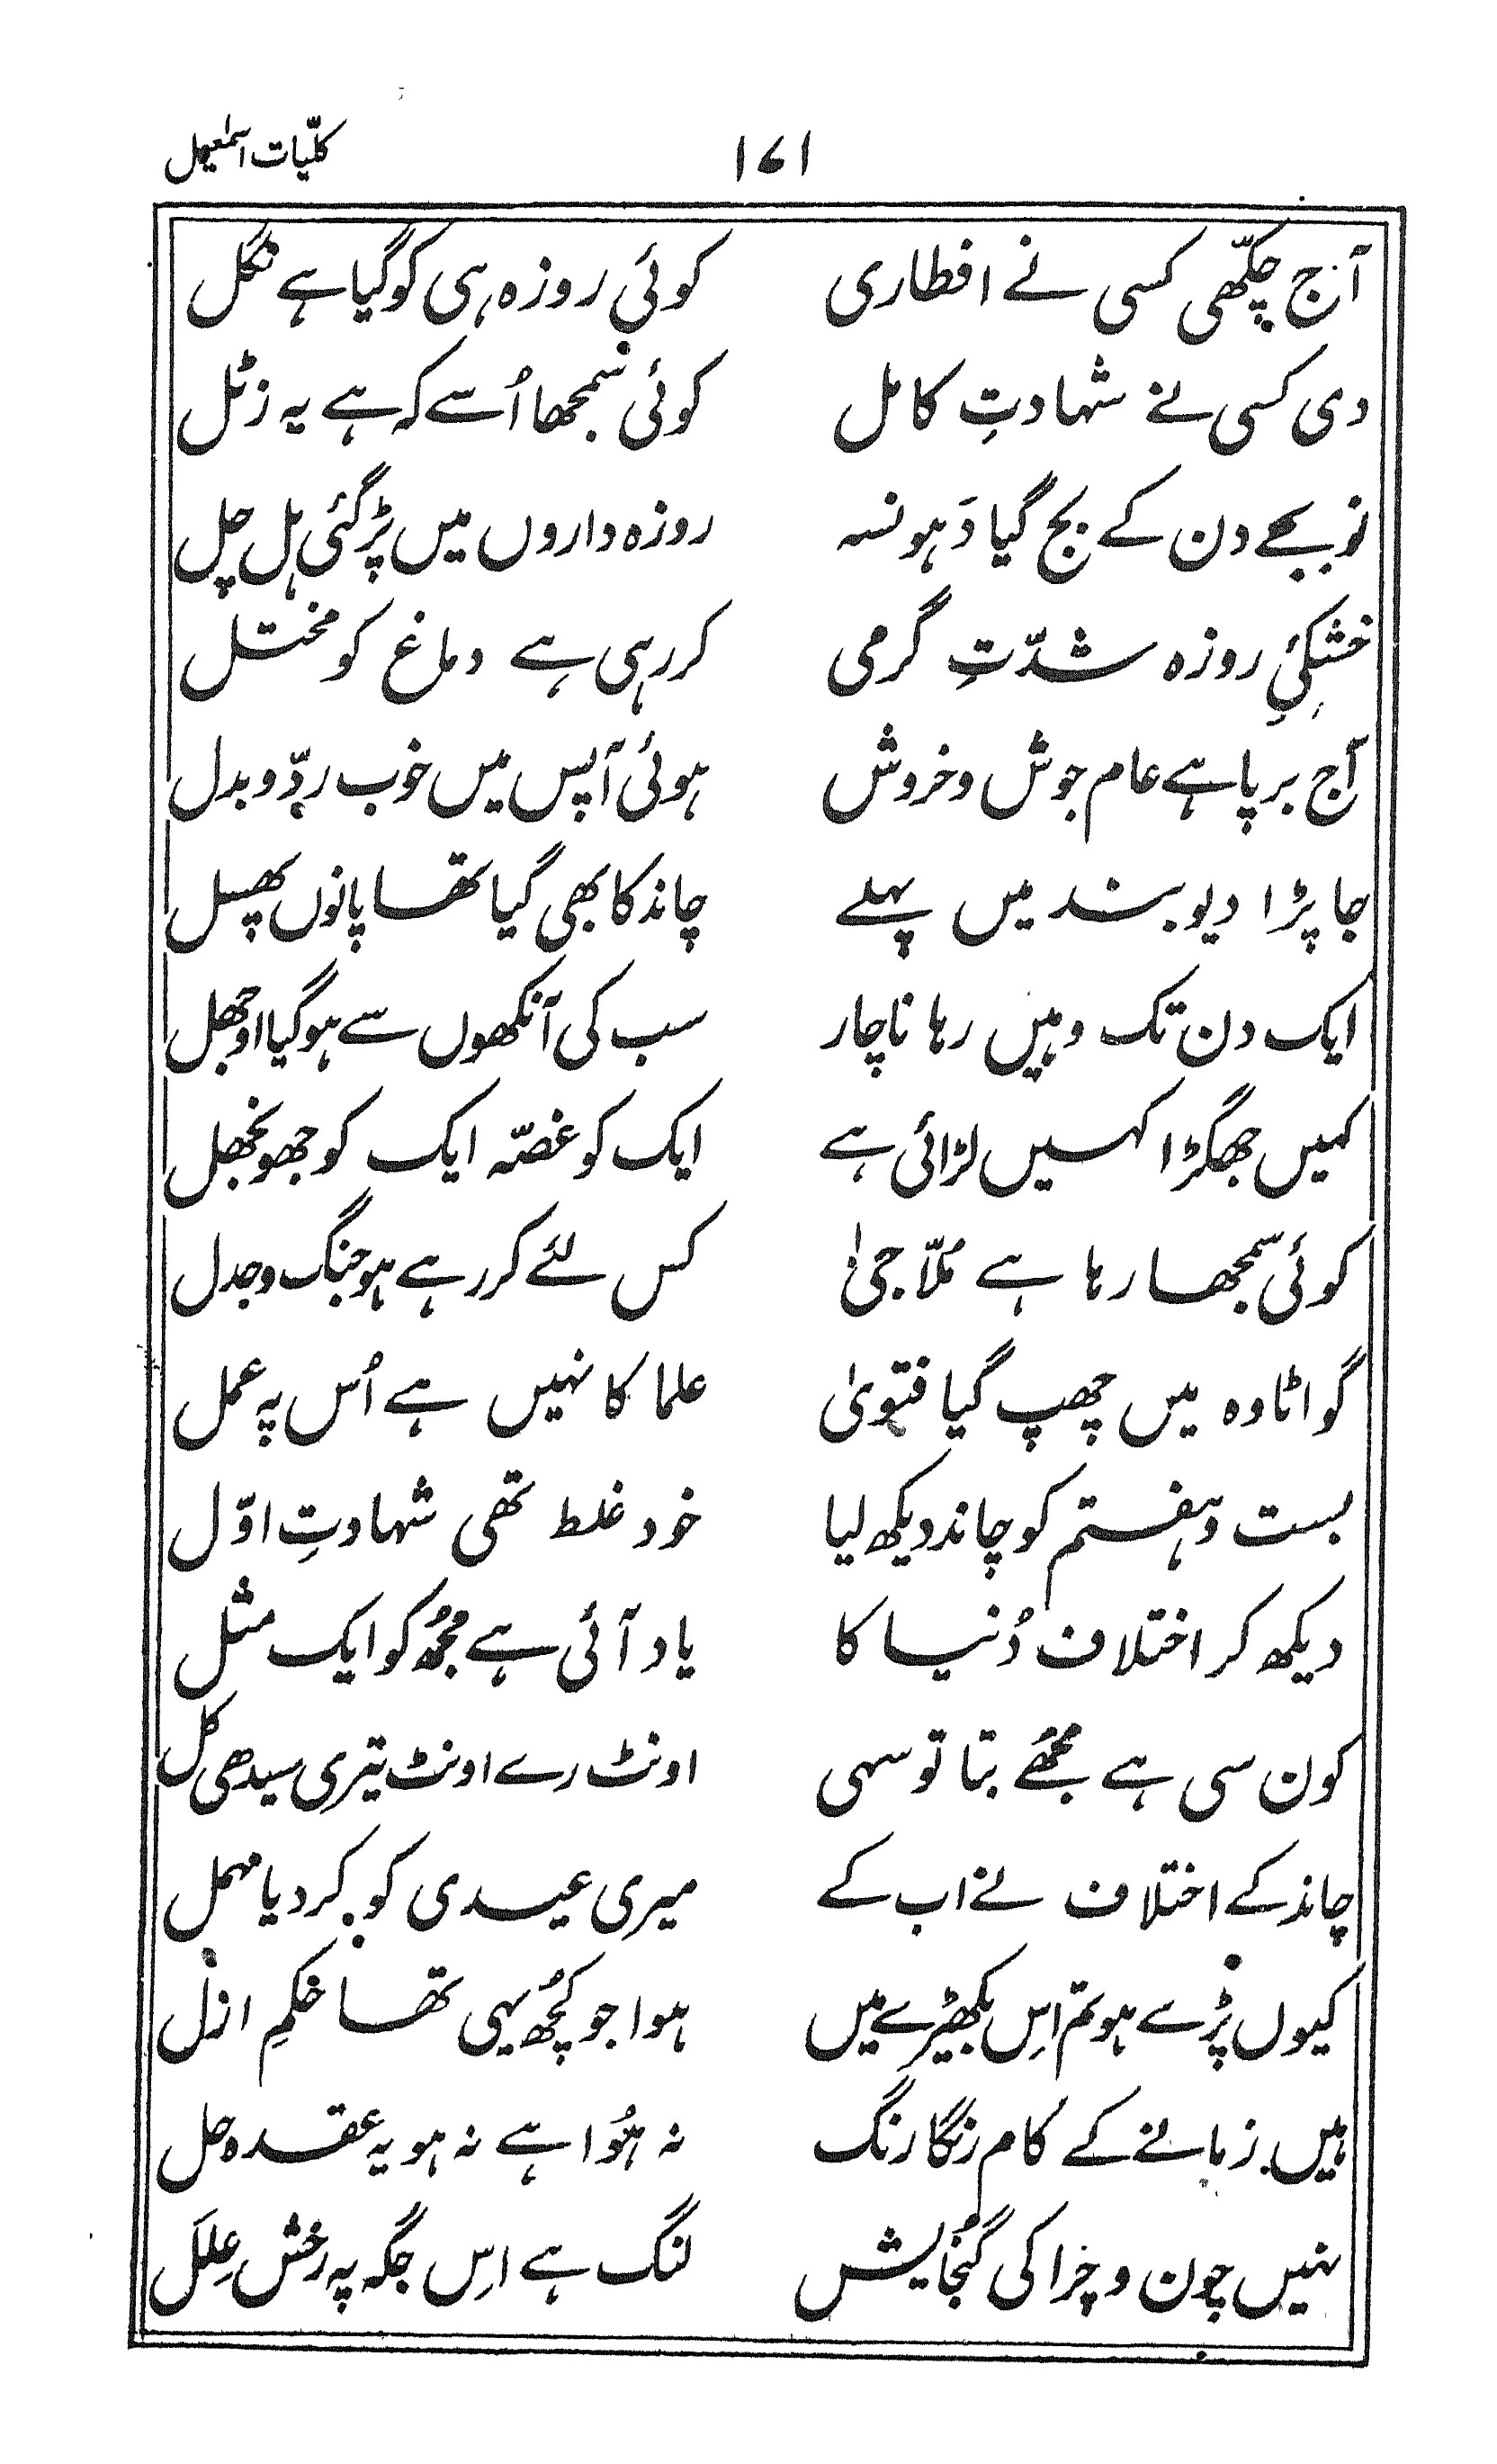 کلّیاتِ اسمٰعیل ۱۷۱
آج چکّھی کسی نے افطاری کوئی روزہ ہی کو گیا ہے نگل
دی کسی نے شہادتِ کامل کوئی سمجھا اُسے کہ ہے یہ زٹل
نو بجے دن کے بج گیا دَہونسہ روزہ داروں میں پڑ گئی ہل چل
خشکیٔ روزہ شدّتِ گرمی کر رہی ہے دماغ کو مختل
آج برپا ہے عام جوش و خروش ہوئی آپس میں خوب ردّ و بدل
جا پڑا دیوبند میں پہلے چاند کا بھی گیا تھا پانوں پھسل
ایک دن تک وہیں رہا ناچار سب کی آنکھوں سے ہو گیا اوجھل
کہیں جھگڑا کہیں لڑائی ہے ایک کو غصّہ ایک کو جھونجھل
کوئی سمجھا رہا ہے مُلّا جی کس لئے کر رہے ہو جنگ و جدل
گو اٹاوہ میں چھپ گیا فتویٰ علما کا نہیں ہے اُس پہ عمل
بست و ہفتم کو چاند دیکھ لیا خود غلط تھی شہادتِ اوّل
دیکھ کر اختلاف دُنیا کا یاد آئی ہے مجھُ کو ایک مثل
کون سی ہے مجھُے بتا تو سہی اونٹ رے اونٹ تیری سیدھی کل
چاند کے اختلاف نے اب کے میری عیدی کو کر دیا مہمل
کیوں پڑے ہو تم اِس بکھیڑے میں ہوا جو کچُھ یہی تھا حُکمِ ازل
ہیں زمانے کے کام رنگا رنگ نہ ہُوا ہے نہ ہو یہ عقدہ حل
نہیں چون و چرا کی گنُجایش لنگ ہے اِس جگہ پہ رخش عِلَل